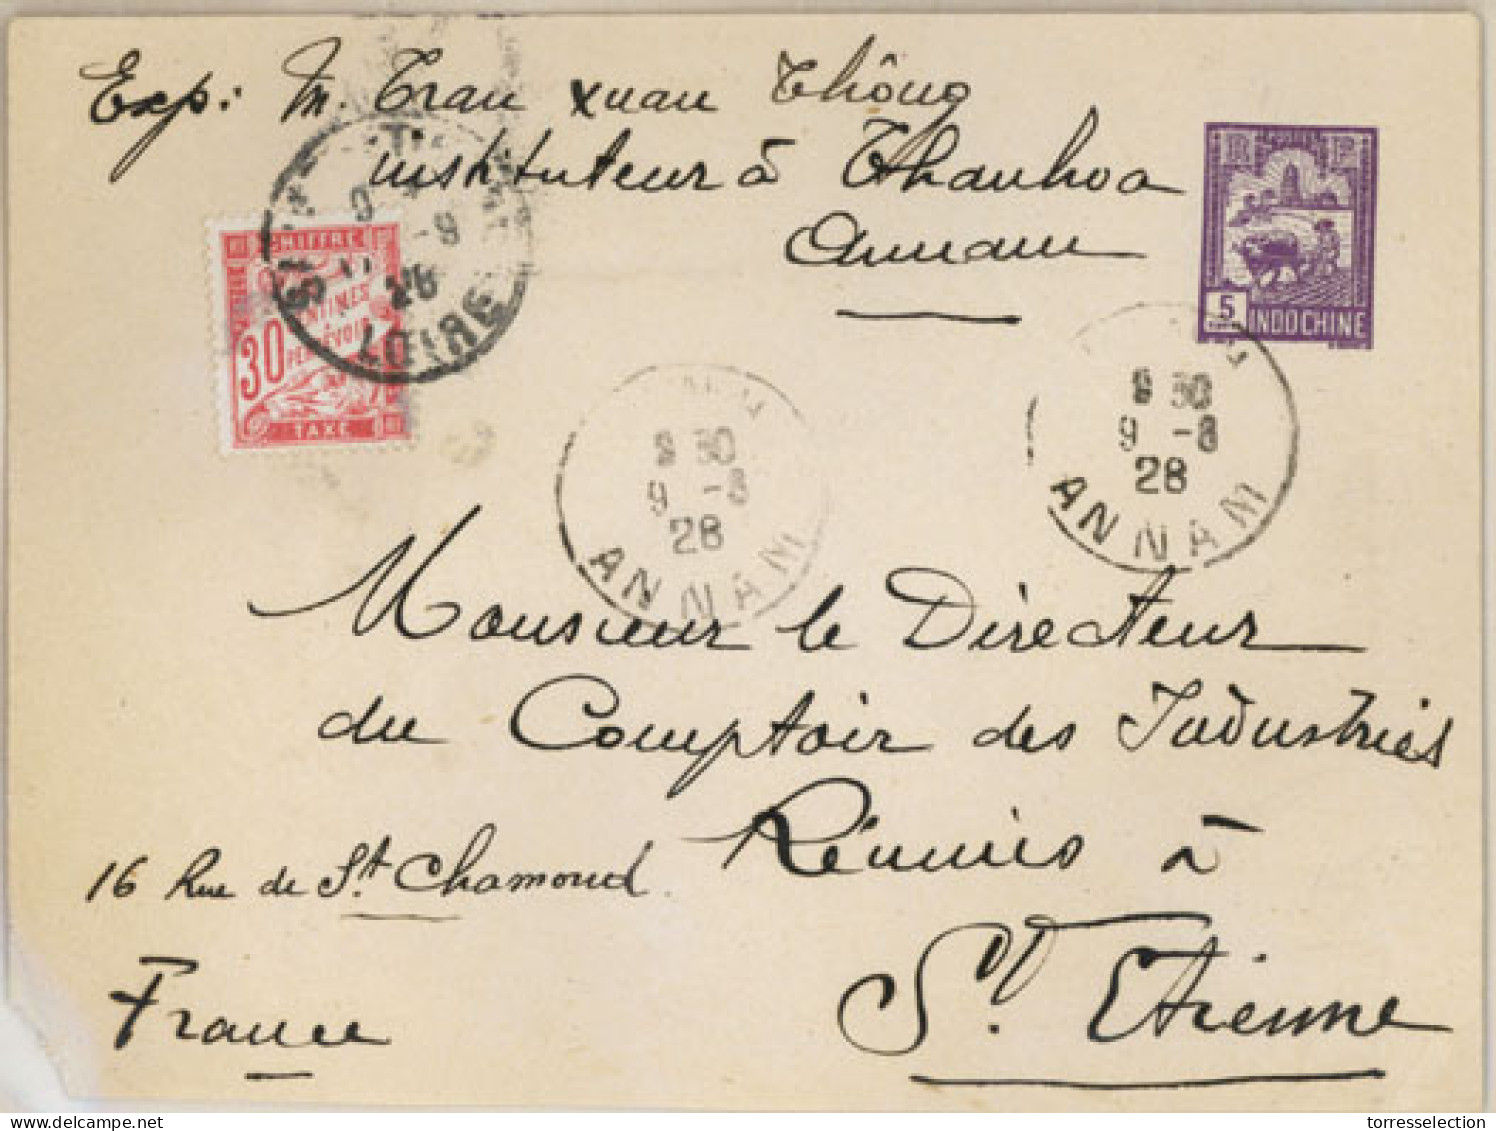 Exp: M. Tran Xuan Thông
instituteur à Thanhhoa
Annam
R F
5
INDOCHINE
CHIFFRE
30 CENTIMES
PERCEVOIR
TAXE
ST
9 -9
28
LOIRE
9 30
9 -8
28
ANNAM
9 30
9 -8
28
ANNAM
Monsieur le Directeur
du Comptoir des Industries
Réunies à
16 Rue de St. Chamond.
St. Etienne
France
torresselection